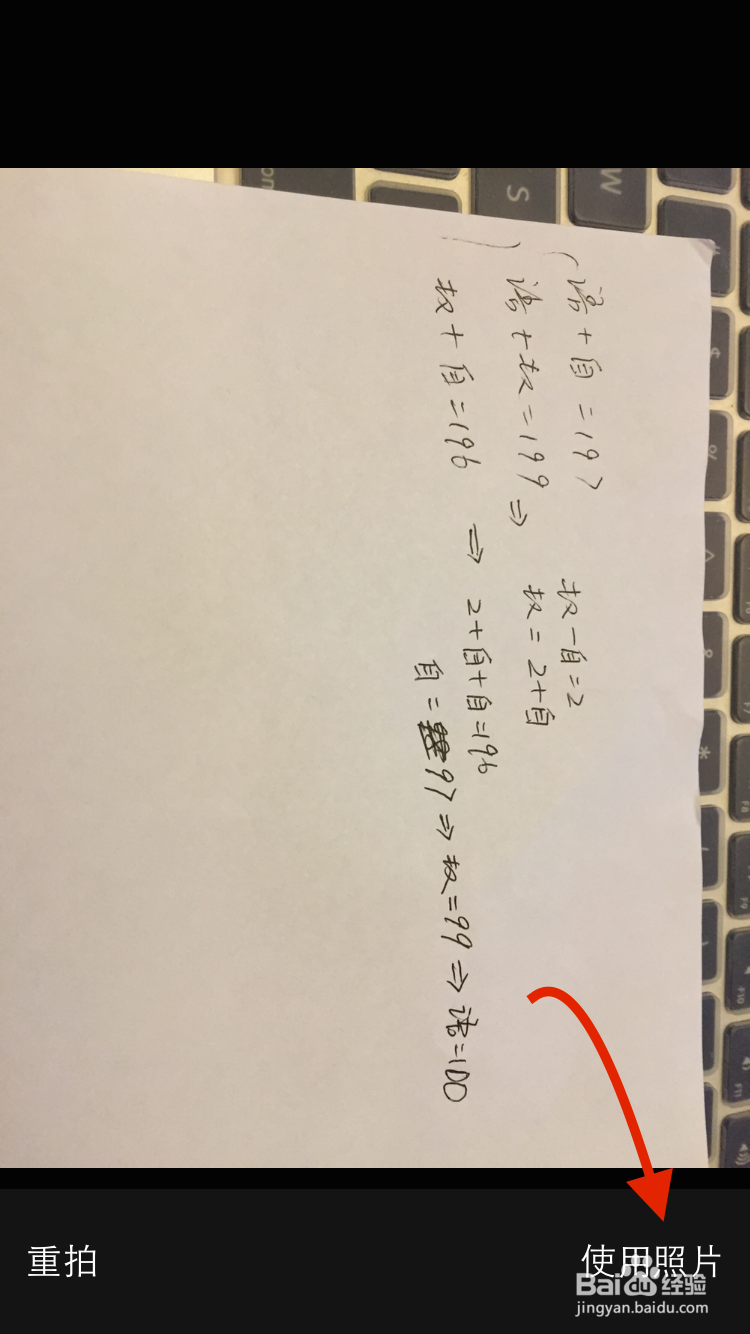 语+自=197
语+数=199 ⇒
数+自=196
数-自=2
数=2+自
⇒ 2+自+自=196
自=97 ⇒ 数=99 ⇒ 语=100
重拍
使用照片
Baidu经验
jingyan.baidu.com